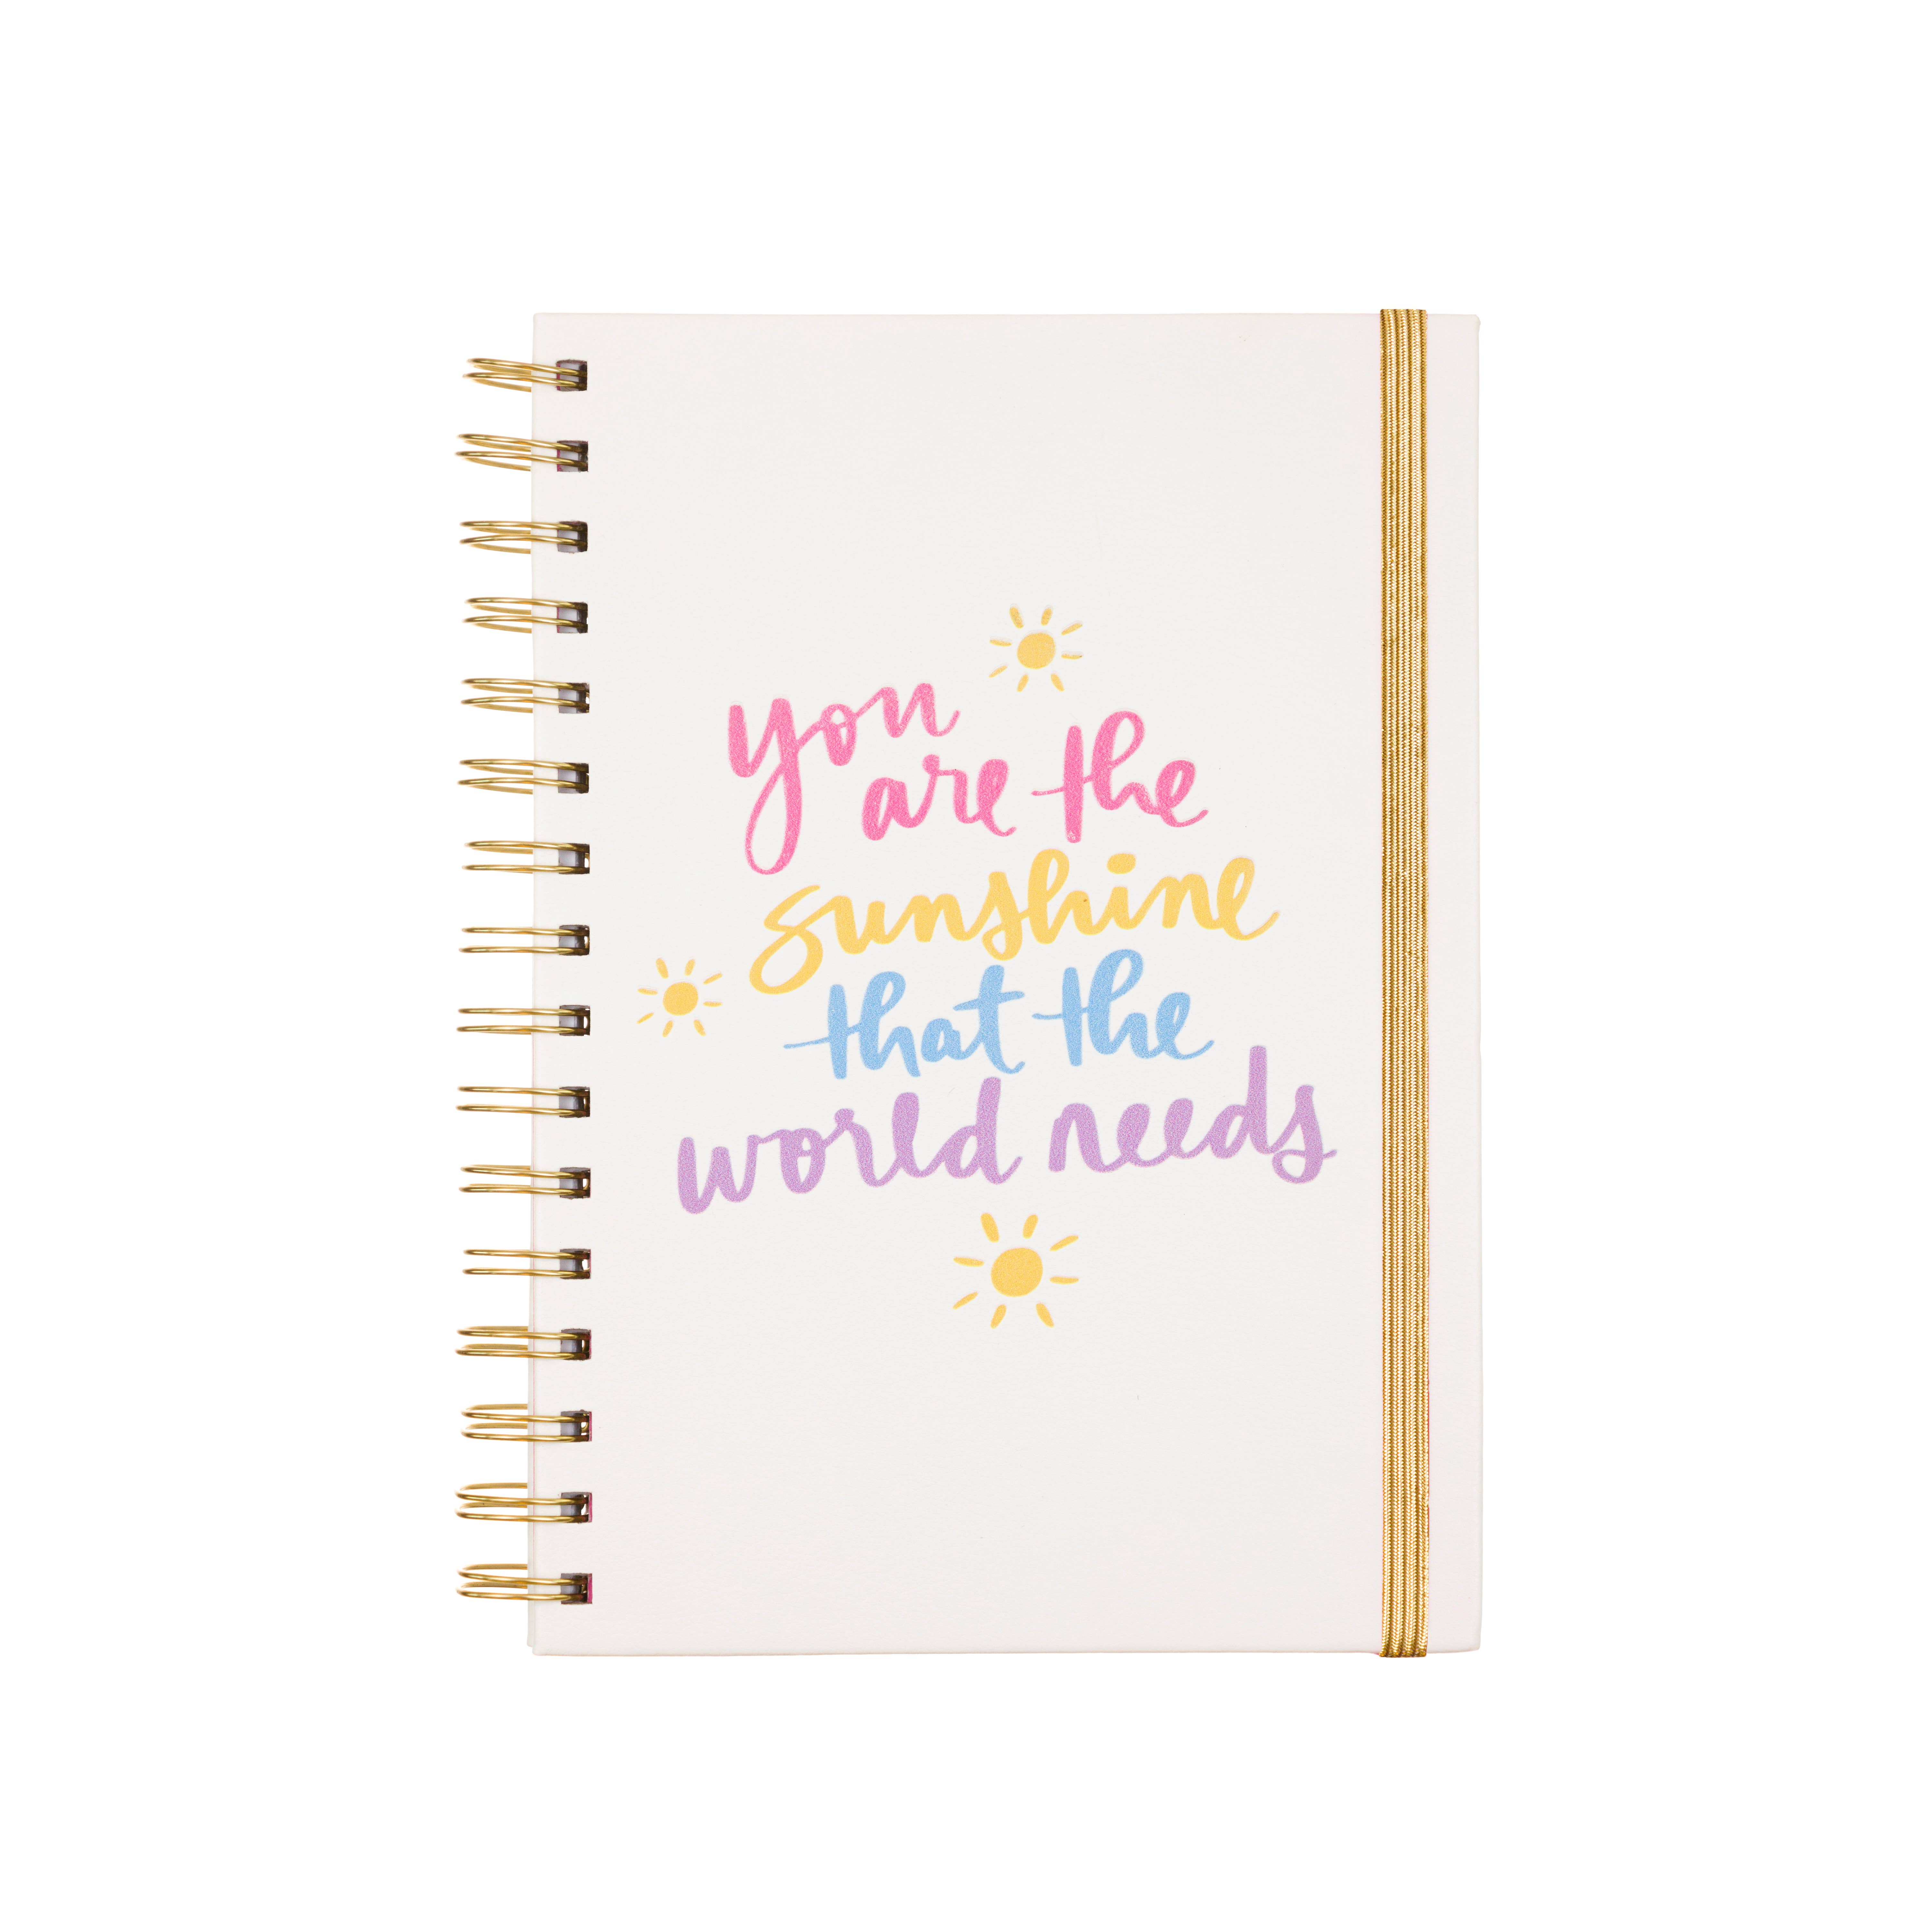 you
are the
sunshine
that the
world needs